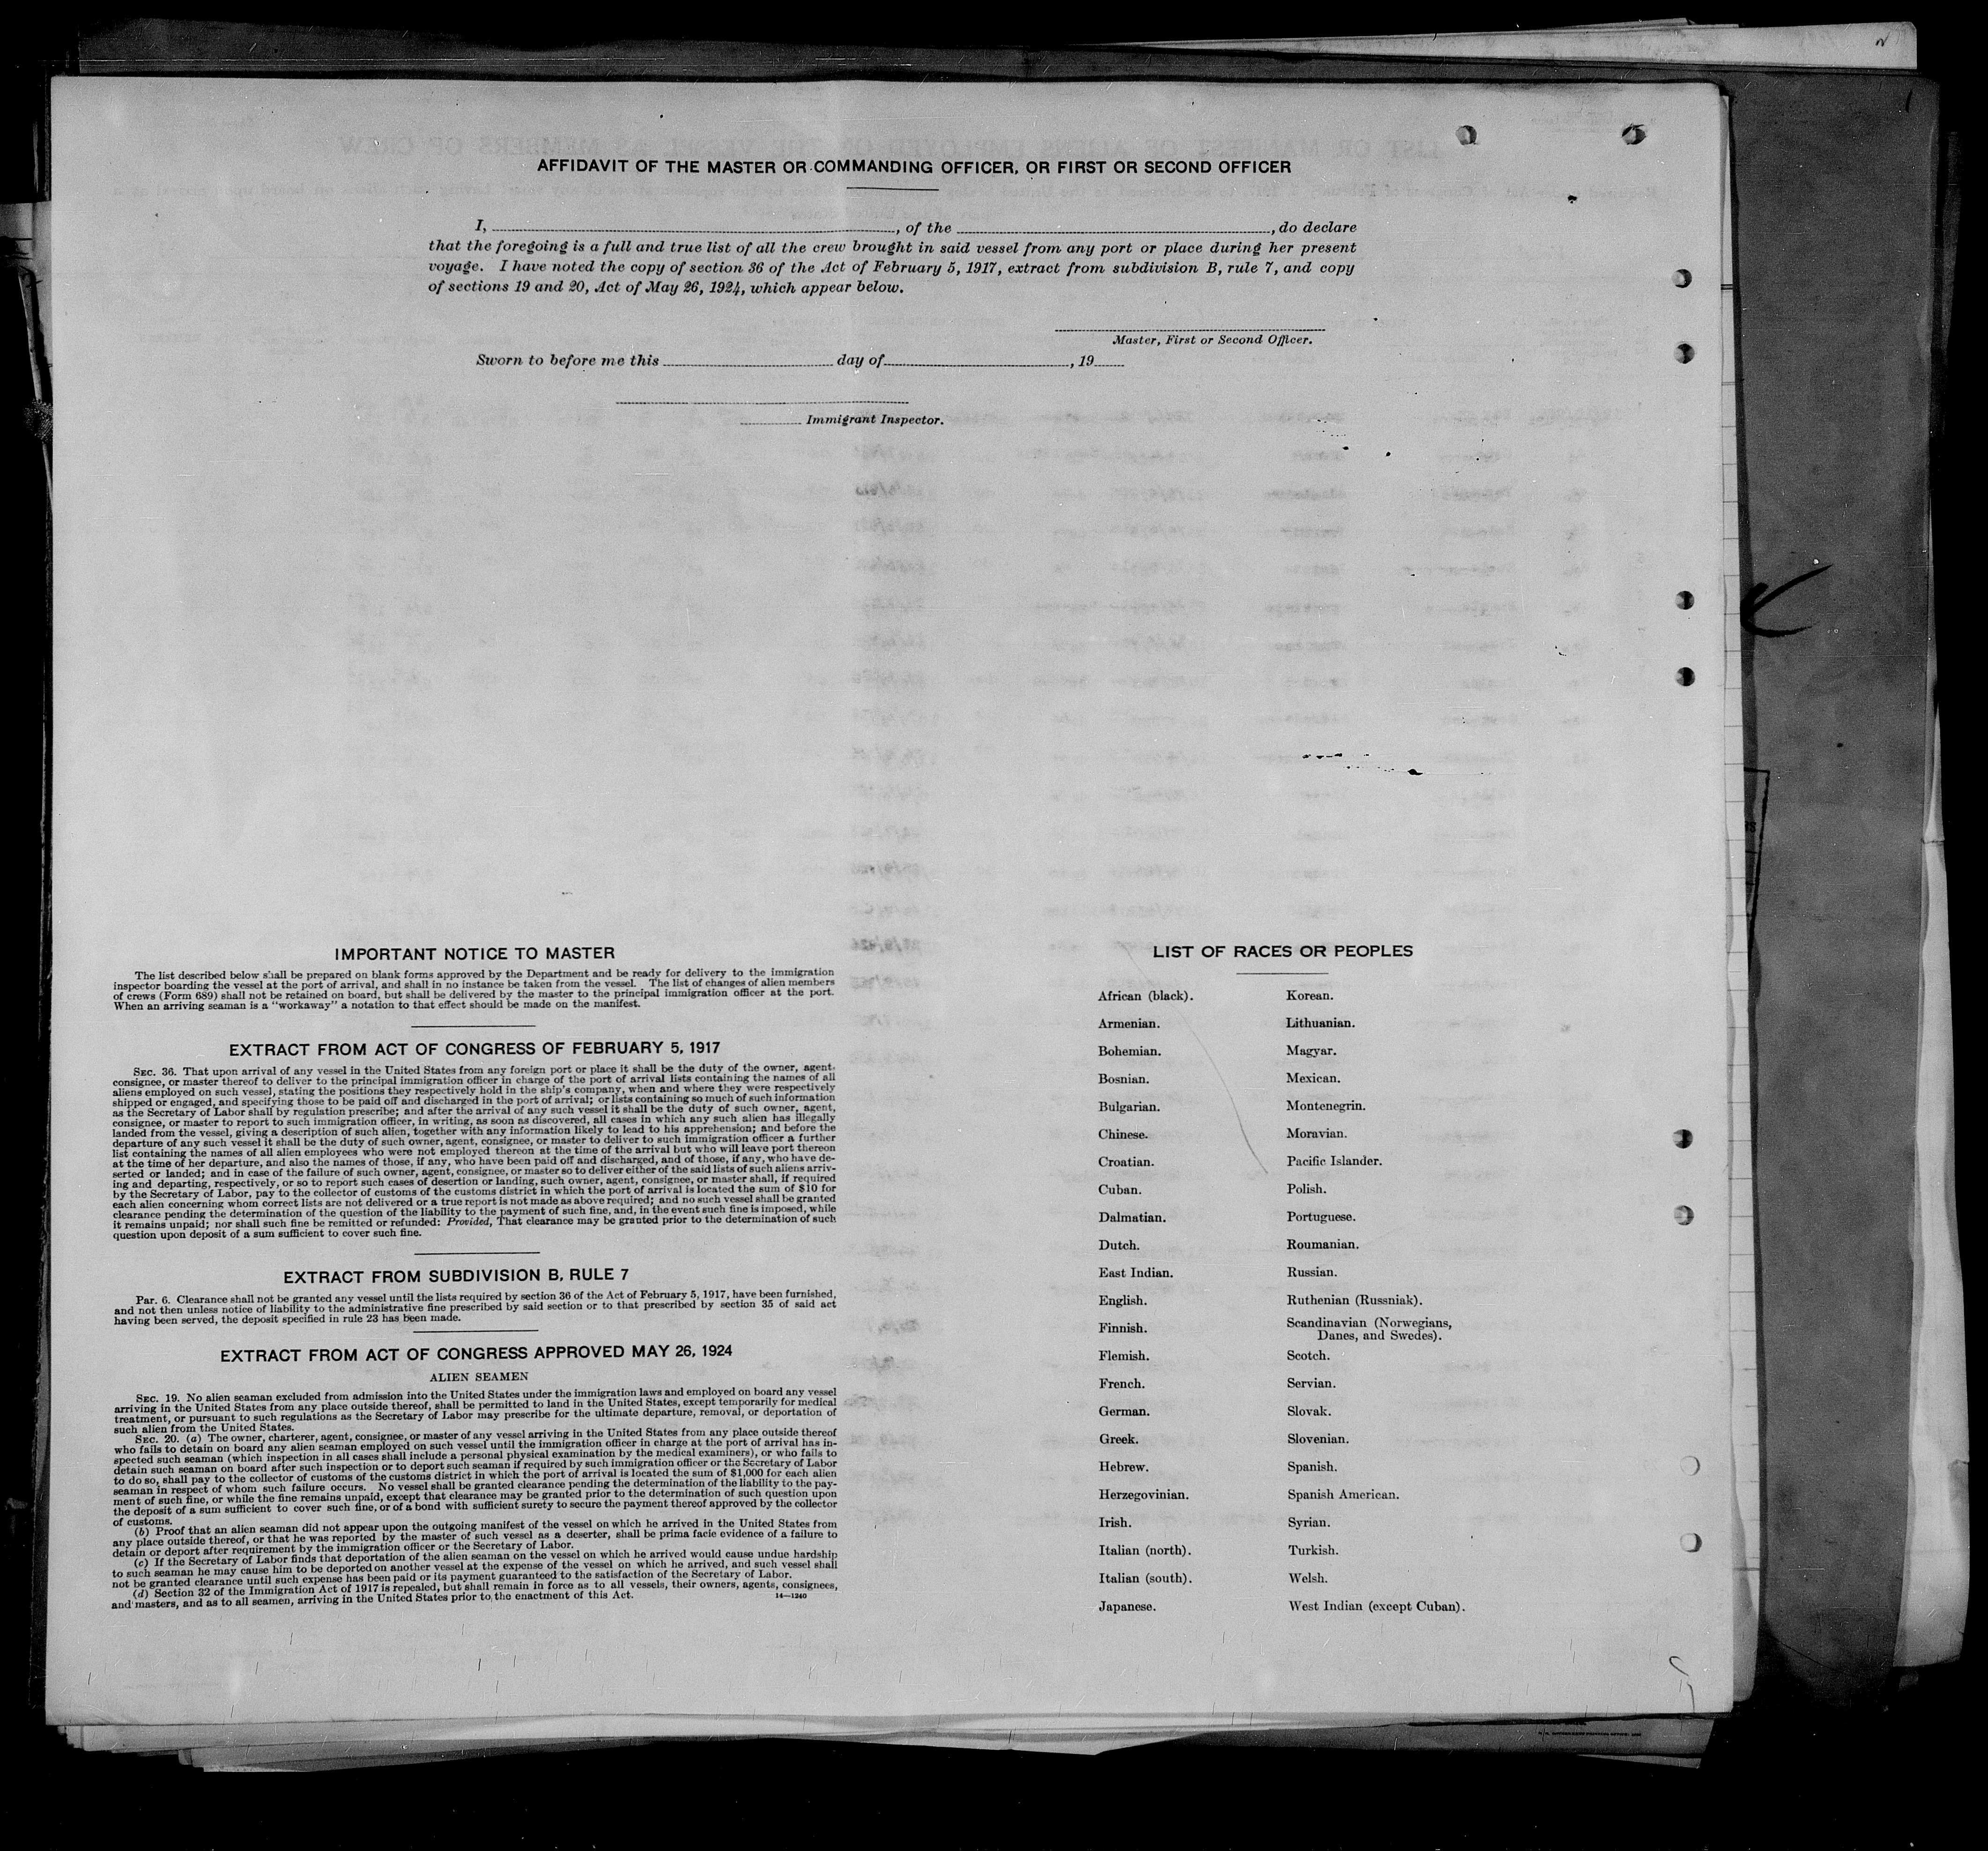 AFFIDAVIT OF THE MASTER OR COMMANDING OFFICER, OR FIRST OR SECOND OFFICER
I, , of the , do declare
that the foregoing is a full and true list of all the crew brought in said vessel from any port or place during her present
voyage. I have noted the copy of section 36 of the Act of February 5, 1917, extract from subdivision B, rule 7, and copy
of sections 19 and 20, Act of May 26, 1924, which appear below.
Master, First or Second Officer.
Sworn to before me this day of , 19
Immigrant Inspector.
IMPORTANT NOTICE TO MASTER
The list described below shall be prepared on blank forms approved by the Department and be ready for delivery to the immigration
inspector boarding the vessel at the port of arrival, and shall in no instance be taken from the vessel. The list of changes of alien members
of crews (Form 689) shall not be retained on board, but shall be delivered by the master to the principal immigration officer at the port.
When an arriving seaman is a "workaway" a notation to that effect should be made on the manifest.
EXTRACT FROM ACT OF CONGRESS OF FEBRUARY 5, 1917
SEC. 36. That upon arrival of any vessel in the United States from any foreign port or place it shall be the duty of the owner, agent,
consignee, or master thereof to deliver to the principal immigration officer in charge of the port of arrival lists containing the names of all
aliens employed on such vessel, stating the positions they respectively hold in the ship's company, when and where they were respectively
shipped or engaged, and specifying those to be paid off and discharged in the port of arrival; or lists containing so much of such information
as the Secretary of Labor shall by regulation prescribe; and after the arrival of any such vessel it shall be the duty of such owner, agent,
consignee, or master to report to such immigration officer, in writing, as soon as discovered, all cases in which any such alien has illegally
landed from the vessel, giving a description of such alien, together with any information likely to lead to his apprehension; and before the
departure of any such vessel it shall be the duty of such owner, agent, consignee, or master to deliver to such immigration officer a further
list containing the names of all alien employees who were not employed thereon at the time of the arrival but who will leave port thereon
at the time of her departure, and also the names of those, if any, who have been paid off and discharged, and of those, if any, who have de-
serted or landed; and in case of the failure of such owner, agent, consignee, or master so to deliver either of the said lists of such aliens arriv-
ing and departing, respectively, or so to report such cases of desertion or landing, such owner, agent, consignee, or master shall, if required
by the Secretary of Labor, pay to the collector of customs of the customs district in which the port of arrival is located the sum of $10 for
each alien concerning whom correct lists are not delivered or a true report is not made as above required; and no such vessel shall be granted
clearance pending the determination of the question of the liability to the payment of such fine, and, in the event such fine is imposed, while
it remains unpaid; nor shall such fine be remitted or refunded: Provided, That clearance may be granted prior to the determination of such
question upon deposit of a sum sufficient to cover such fine.
EXTRACT FROM SUBDIVISION B, RULE 7
Par. 6. Clearance shall not be granted any vessel until the lists required by section 36 of the Act of February 5, 1917, have been furnished,
and not then unless notice of liability to the administrative fine prescribed by said section or to that prescribed by section 35 of said act
having been served, the deposit specified in rule 23 has been made.
EXTRACT FROM ACT OF CONGRESS APPROVED MAY 26, 1924
ALIEN SEAMEN
SEC. 19. No alien seaman excluded from admission into the United States under the immigration laws and employed on board any vessel
arriving in the United States from any place outside thereof, shall be permitted to land in the United States, except temporarily for medical
treatment, or pursuant to such regulations as the Secretary of Labor may prescribe for the ultimate departure, removal, or deportation of
such alien from the United States.
SEC. 20. (a) The owner, charterer, agent, consignee, or master of any vessel arriving in the United States from any place outside thereof
who fails to detain on board any alien seaman employed on such vessel until the immigration officer in charge at the port of arrival has in-
spected such seaman (which inspection in all cases shall include a personal physical examination by the medical examiners), or who fails to
detain such seaman on board after such inspection or to deport such seaman if required by such immigration officer or the Secretary of Labor
to do so, shall pay to the collector of customs of the customs district in which the port of arrival is located the sum of $1,000 for each alien
seaman in respect of whom such failure occurs. No vessel shall be granted clearance pending the determination of the liability to the pay-
ment of such fine, or while the fine remains unpaid, except that clearance may be granted prior to the determination of such question upon
the deposit of a sum sufficient to cover such fine, or of a bond with sufficient surety to secure the payment thereof approved by the collector
of customs.
(b) Proof that an alien seaman did not appear upon the outgoing manifest of the vessel on which he arrived in the United States from
any place outside thereof, or that he was reported by the master of such vessel as a deserter, shall be prima facie evidence of a failure to
detain or deport after requirement by the immigration officer or the Secretary of Labor.
(c) If the Secretary of Labor finds that deportation of the alien seaman on the vessel on which he arrived would cause undue hardship
to such seaman he may cause him to be deported on another vessel at the expense of the vessel on which he arrived, and such vessel shall
not be granted clearance until such expense has been paid or its payment guaranteed to the satisfaction of the Secretary of Labor.
(d) Section 32 of the Immigration Act of 1917 is repealed, but shall remain in force as to all vessels, their owners, agents, consignees,
and masters, and as to all seamen, arriving in the United States prior to the enactment of this Act. 14—1240
LIST OF RACES OR PEOPLES
African (black). Korean.
Armenian. Lithuanian.
Bohemian. Magyar.
Bosnian. Mexican.
Bulgarian. Montenegrin.
Chinese. Moravian.
Croatian. Pacific Islander.
Cuban. Polish.
Dalmatian. Portuguese.
Dutch. Roumanian.
East Indian. Russian.
English. Ruthenian (Russniak).
Finnish. Scandinavian (Norwegians,
Danes, and Swedes).
Flemish. Scotch.
French. Servian.
German. Slovak.
Greek. Slovenian.
Hebrew. Spanish.
Herzegovinian. Spanish American.
Irish. Syrian.
Italian (north). Turkish.
Italian (south). Welsh.
Japanese. West Indian (except Cuban).